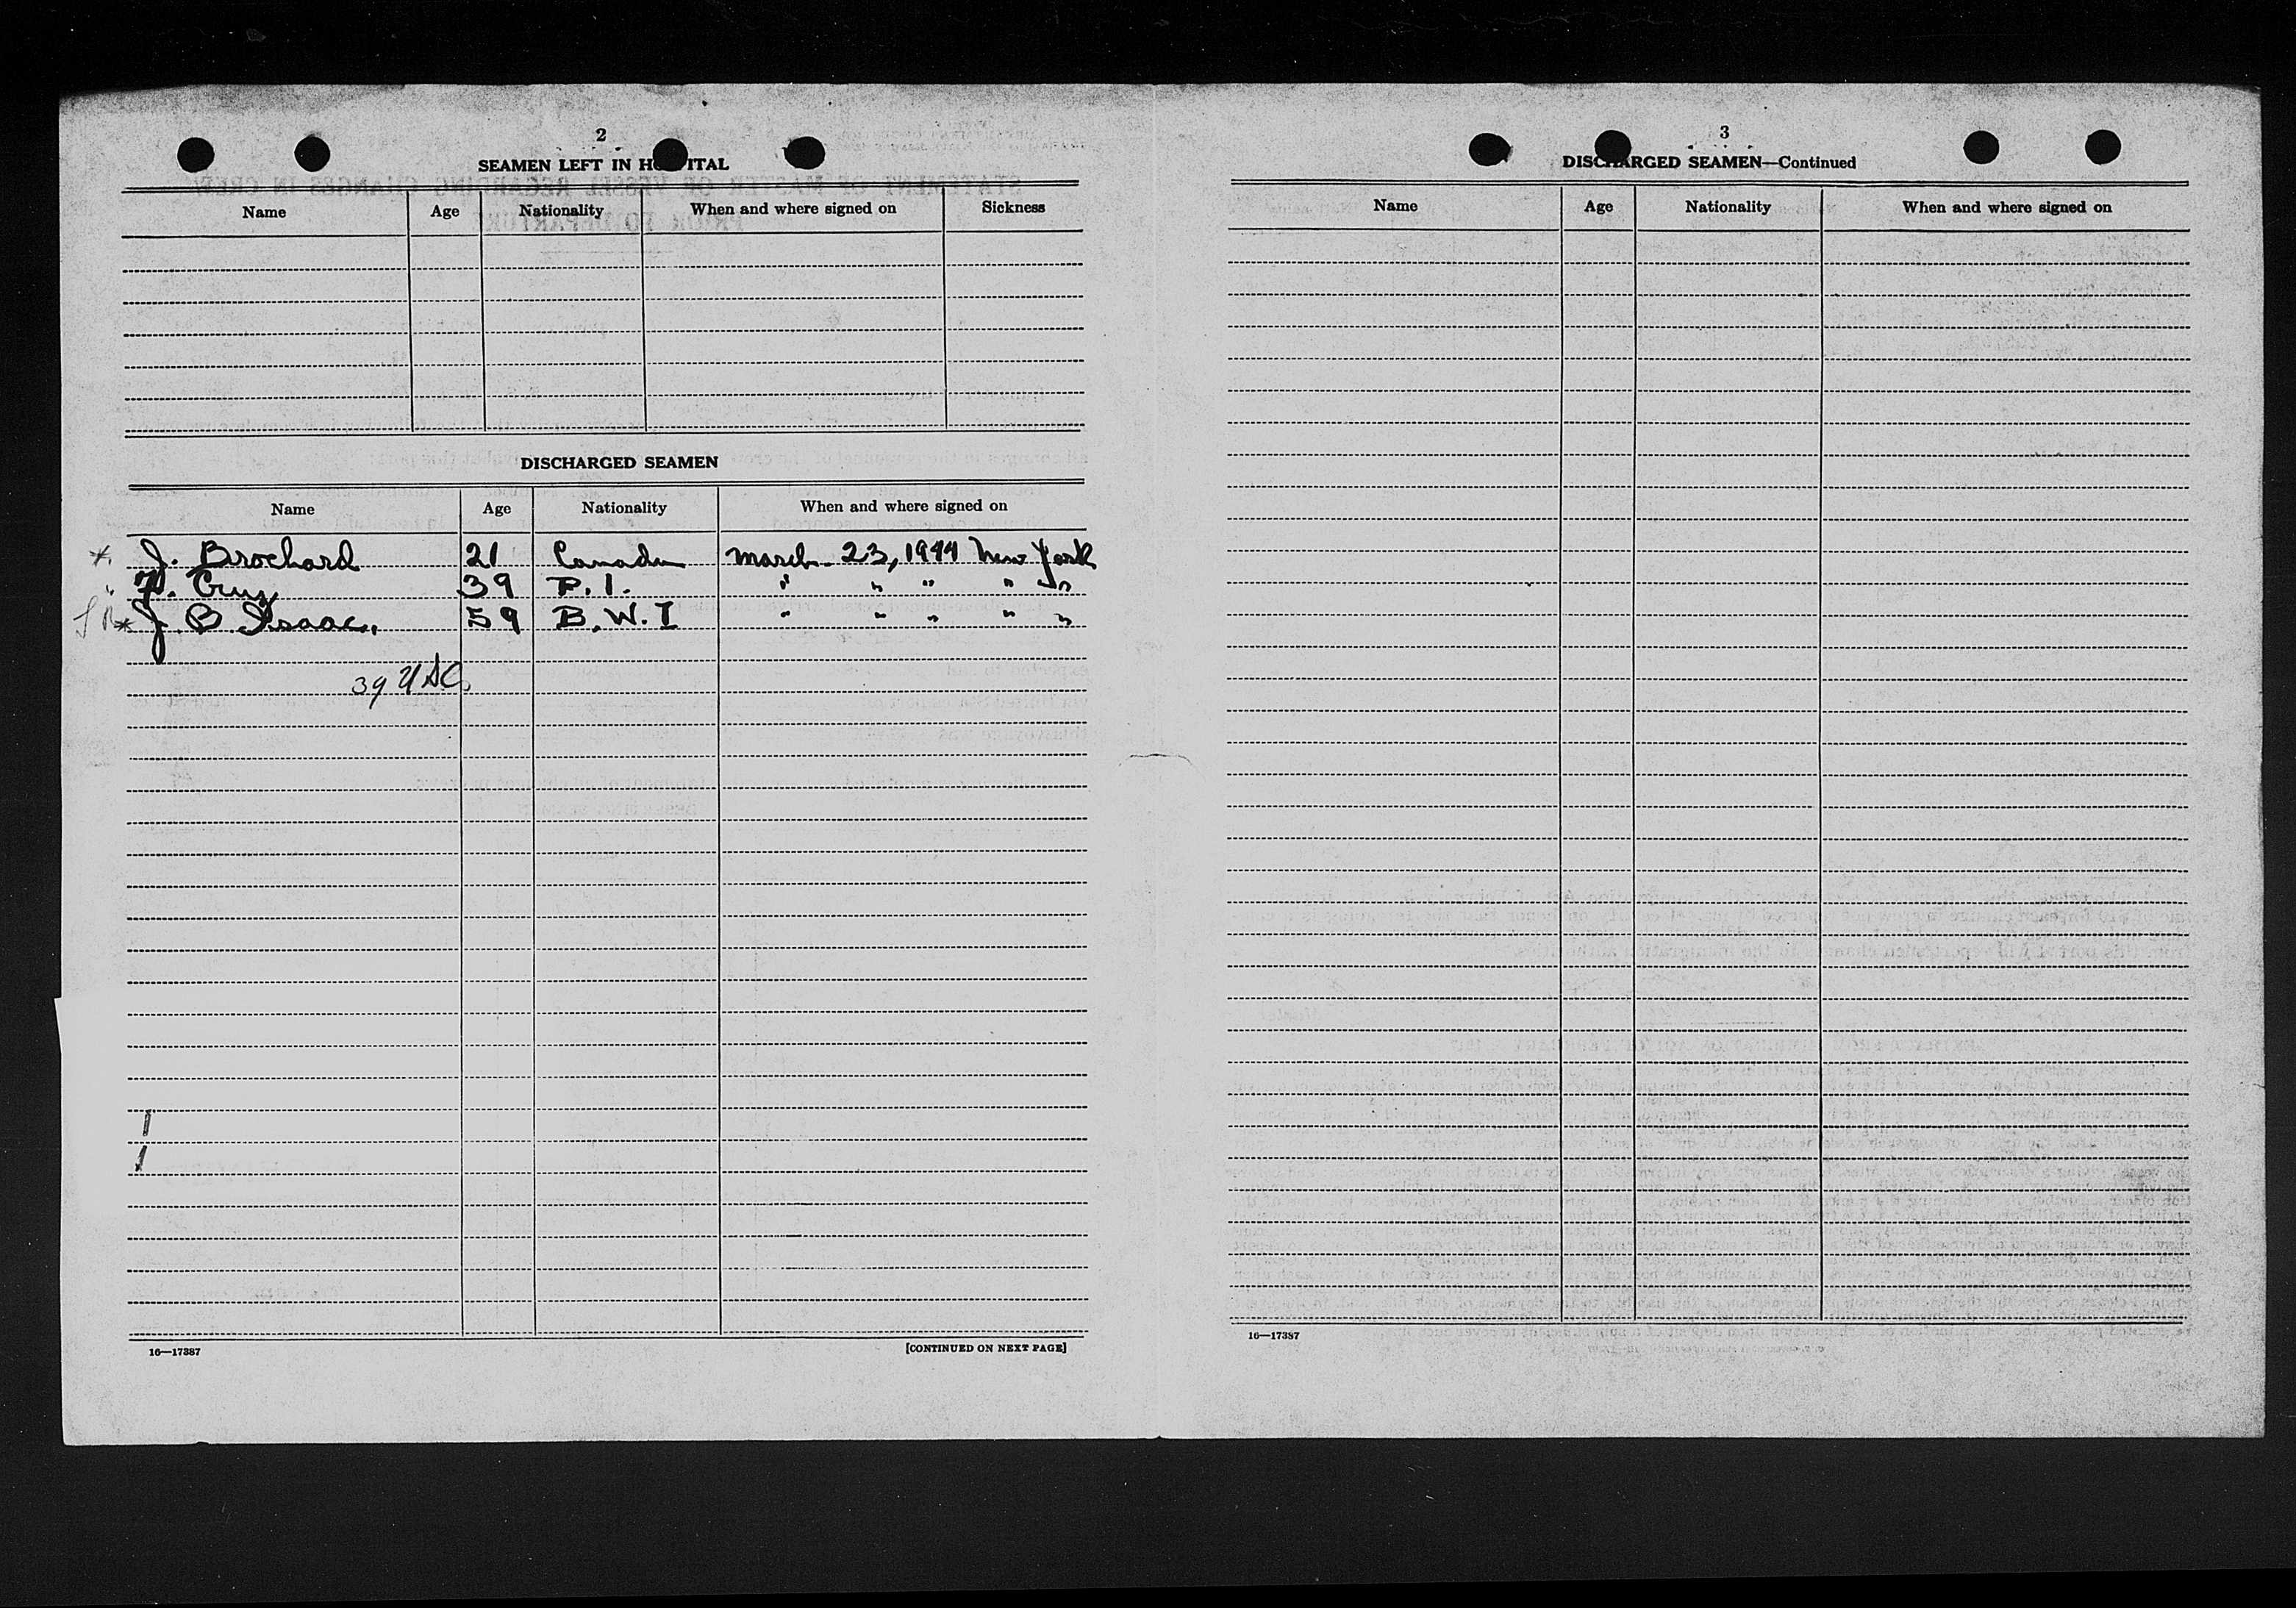 2
SEAMEN LEFT IN HOSPITAL
Name Age Nationality When and where signed on Sickness
DISCHARGED SEAMEN
Name Age Nationality When and where signed on
* J. Brochard 21 Canada March 23, 1944 New York
" Cruz 39 P.I. " " " " "
* J. B. Isaac, 59 B.W.I " " " " "
39 USC
16—17387 [CONTINUED ON NEXT PAGE]
3
DISCHARGED SEAMEN—Continued
Name Age Nationality When and where signed on
16—17387